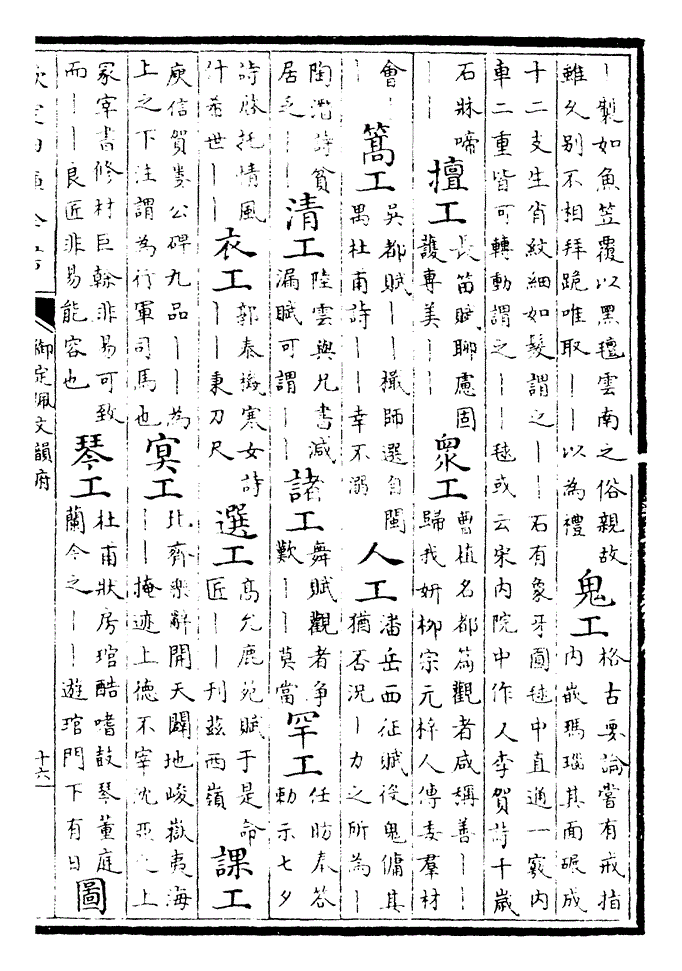 丨製如魚笠覆以黑氊雲南之俗親故
雖久别不相拜跪唯取丨丨以為禮
鬼工
格古要論嘗有戒指
内嵌瑪瑙其面碾成
十二支生肖紋細如髮謂之丨丨石有象牙圓毬中直通一竅内
車二重皆可轉動謂之丨丨毬或云宋内院中作人李賀詩十歲
石牀啼
丨丨
擅工
長笛賦聊慮固
護専美丨丨
衆工
曹植名都篇觀者咸稱善丨丨
歸我妍柳宗元梓人傳委羣材
會丨
丨
篙工
吳都賦丨丨檝師選自閩
禺杜甫詩丨丨幸不溺
人工
潘岳西征賦役鬼傭其
猶否況丨力之所為丨
陶潛詩貧
居乏丨丨
清工
陸雲與兄書減
漏賦可謂丨丨
諸工
舞賦觀者爭
歎丨丨莫當
罕工
任昉奉答
勅示七夕
詩牋托情風
什希世丨丨
衣工
郭泰機寒女詩
丨丨秉刀尺
選工
高允鹿苑賦于是命
匠丨丨刊兹西嶺
課工
庾信賀婁公碑九品丨丨為
上之下注謂為行軍司馬也
冥工
北齊樂辭開天闢地峻嶽夷海
丨丨掩迹上德不宰沈亞之上
冢宰書修材巨榦非易可致
而丨丨良匠非易能容也
琴工
杜甫狀房琯酷嗜鼓琴董庭
蘭今之丨丨遊琯門下有日
圖
欽定四庫全書
御定佩文韻府
十六